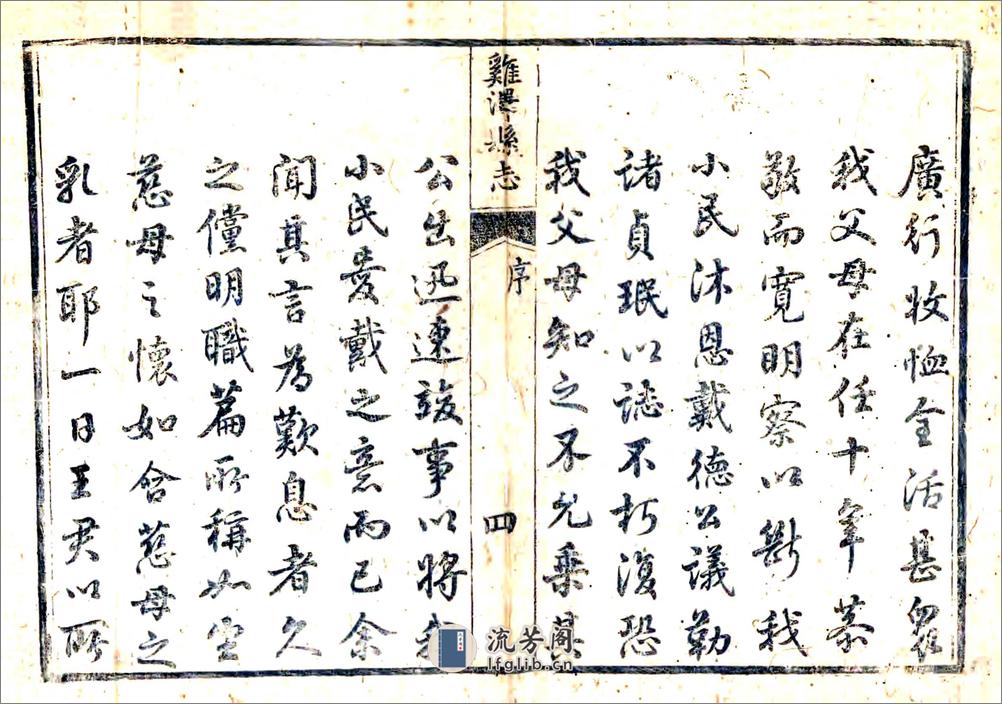 廣行收恤全活甚眾
我父母在任十年恭
敬而寬明察以斷我
小民沐恩戴德公議勒
諸貞珉以誌不朽復恐
我父母知之不允乘其
雞澤縣志
序
四
公出迅速竣事以將我
小民愛戴之意而已余
聞其言為歎息者久
之儻明職篇所稱如坐
慈母之懷如含慈母之
乳者耶一日王君以所
流芳阁
lfglib.cn